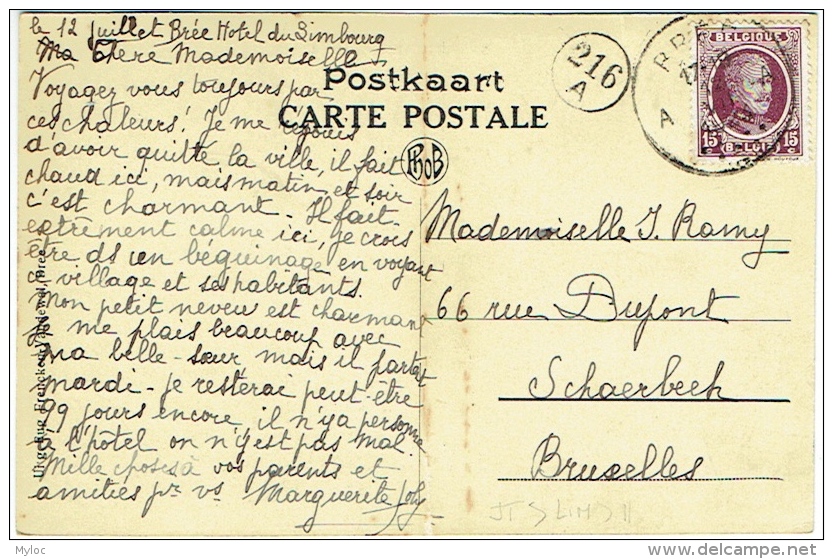 le 12 juillet Brée Hotel du Limbourg
Ma Chère Mademoiselle
Voyagez vous toujours par
ces chaleurs! Je me réjouis
d'avoir quitté la ville, il fait
chaud ici, mais matin et soir
c'est charmant. Il fait
extrêment calme ici, je crois
être ds un béguinage en voyant
ce village et ses habitants.
Mon petit neveu est charmant
je me plais beaucoup avec
ma belle-sœur mais il partent
mardi - je resterai peut être
99 jours encore, il n'y a personne
à l'hôtel on n'y est pas mal.
Mille choses à vos parents et
amitiés pr vs Marguerite
Postkaart
CARTE POSTALE
PhoB
216
A
BELGIQUE
15c 15c
BELGIË
A A
Mademoiselle J. Ramy
66 rue Dupont
Schaerbeek
Bruxelles
Uitgeving
Bree
Myloc
delcampe.net